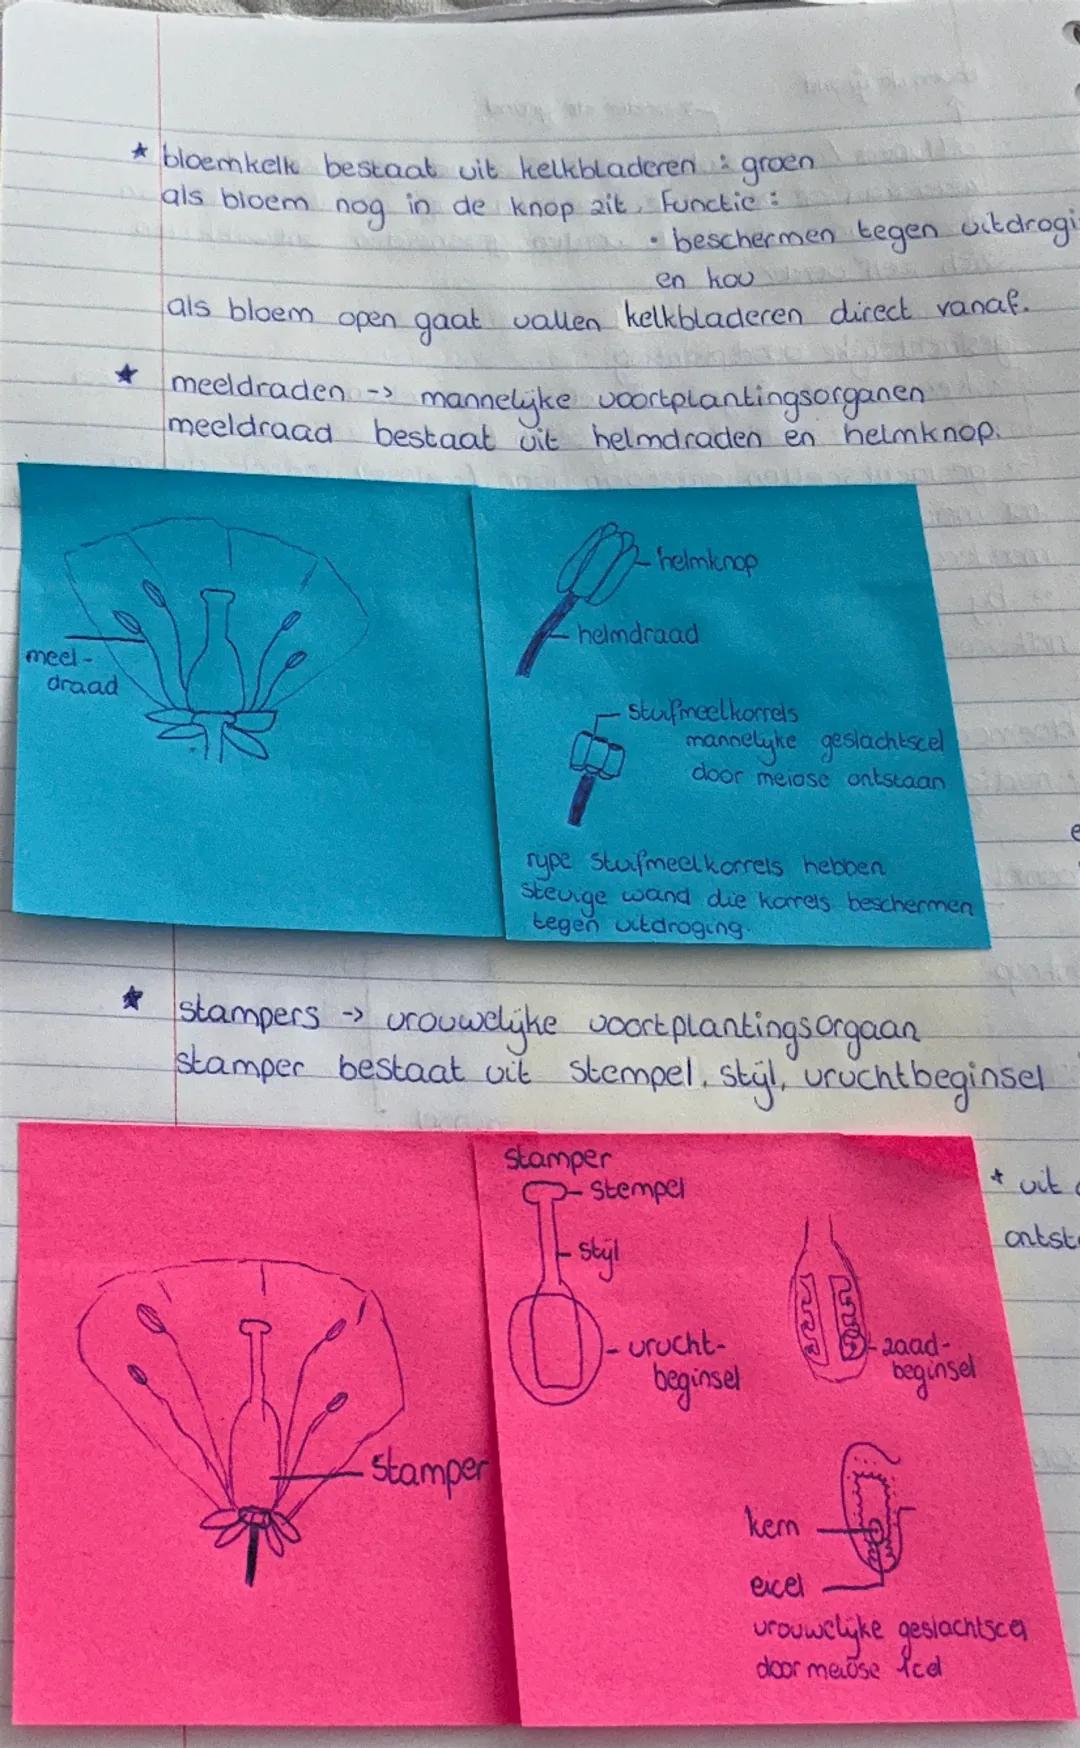 * bloemkelk bestaat uit kelkbladeren : groen
als bloem nog in de knop zit. Functie :
• beschermen tegen uitdrogi
en kou
als bloem open gaat vallen kelkbladeren direct vanaf.
* meeldraden -> mannelijke voortplantingsorganen
meeldraad bestaat uit helmdraden en helmknop.
meel-
draad
helmknop
helmdraad
stuifmeelkorrels
mannelijke geslachtscel
door meiose ontstaan
rijpe stuifmeelkorrels hebben
stevige wand die korrels beschermen
tegen uitdroging.
* stampers -> vrouwelijke voortplantingsorgaan
stamper bestaat uit stempel, stijl, vruchtbeginsel
stamper
stamper
stempel
stijl
vrucht-
beginsel
zaad-
beginsel
kern
eicel
vrouwelijke geslachtscel
door meiose 1cel
* uit
ontst